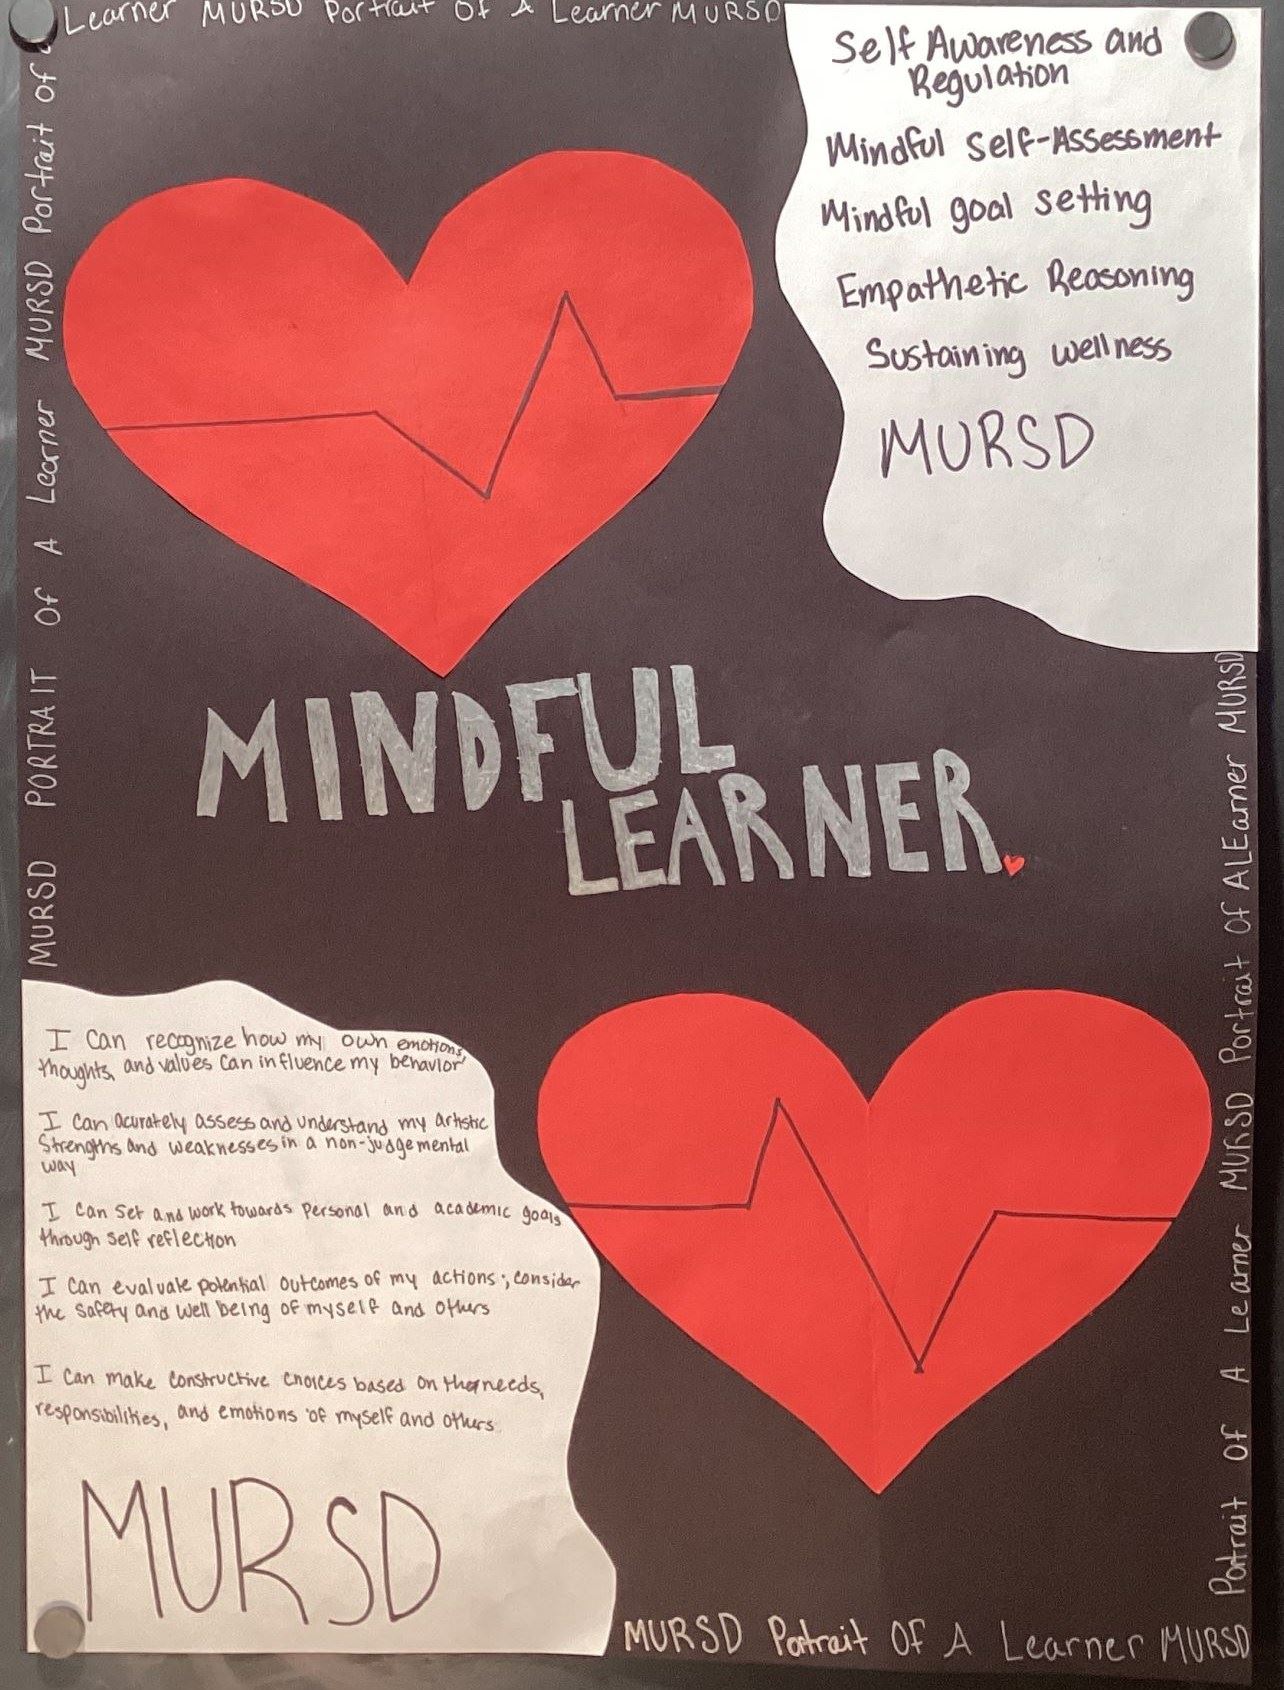 Learner MURSD Portrait Of A Learner MURSD
MURSD PORTRAIT Of A Learner MURSD Portrait of a
Self Awareness and
Regulation
Mindful Self-Assessment
Mindful goal setting
Empathetic Reasoning
Sustaining wellness
MURSD
MINDFUL
LEARNER
I Can recognize how my own emotions,
thoughts, and values can influence my behavior
I can acurately assess and understand my artistic
Strengths and weaknesses in a non-judgemental
way
I can set and work towards personal and academic goals
through self reflection
I can evaluate potential outcomes of my actions; consider
the safety and well being of myself and others
I can make constructive choices based on the needs,
responsibilities, and emotions of myself and others.
MURSD
Portrait Of A Learner MURSD Portrait Of A LEarner MURSD
MURSD Portrait Of A Learner MURSD